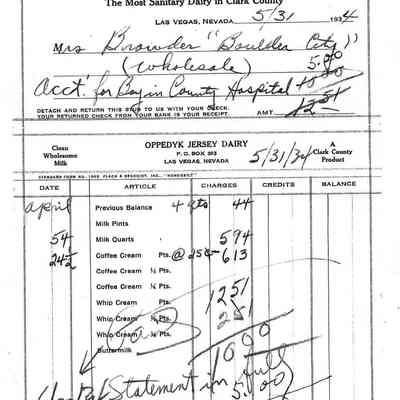 The Most Sanitary Dairy in Clark County
LAS VEGAS, NEVADA 5/31 1934
Mrs Browder "Boulder City"
(Wholesale) 5.00
Acct. for Boy in County Hospital 10.00
DETACH AND RETURN THIS STUB TO US WITH YOUR CHECK.
YOUR RETURNED CHECK FROM YOUR BANK IS YOUR RECEIPT. AMT. 12.51
Clean Wholesome Milk
OPPEDYK JERSEY DAIRY
P. O. BOX 203
LAS VEGAS, NEVADA 5/31/34
A Clark County Product
DATE ARTICLE CHARGES CREDITS BALANCE
April Previous Balance 4 qts 44
Milk Pints
54 Milk Quarts 594
24½ Coffee Cream Pts. @ 25¢ 613
Coffee Cream ½ Pts.
Coffee Cream ¼ Pts.
Whip Cream Pts. 1251
Whip Cream ½ Pts. 251
Whip Cream ¼ Pts.
Buttermilk 1000
Statement in full
5.00